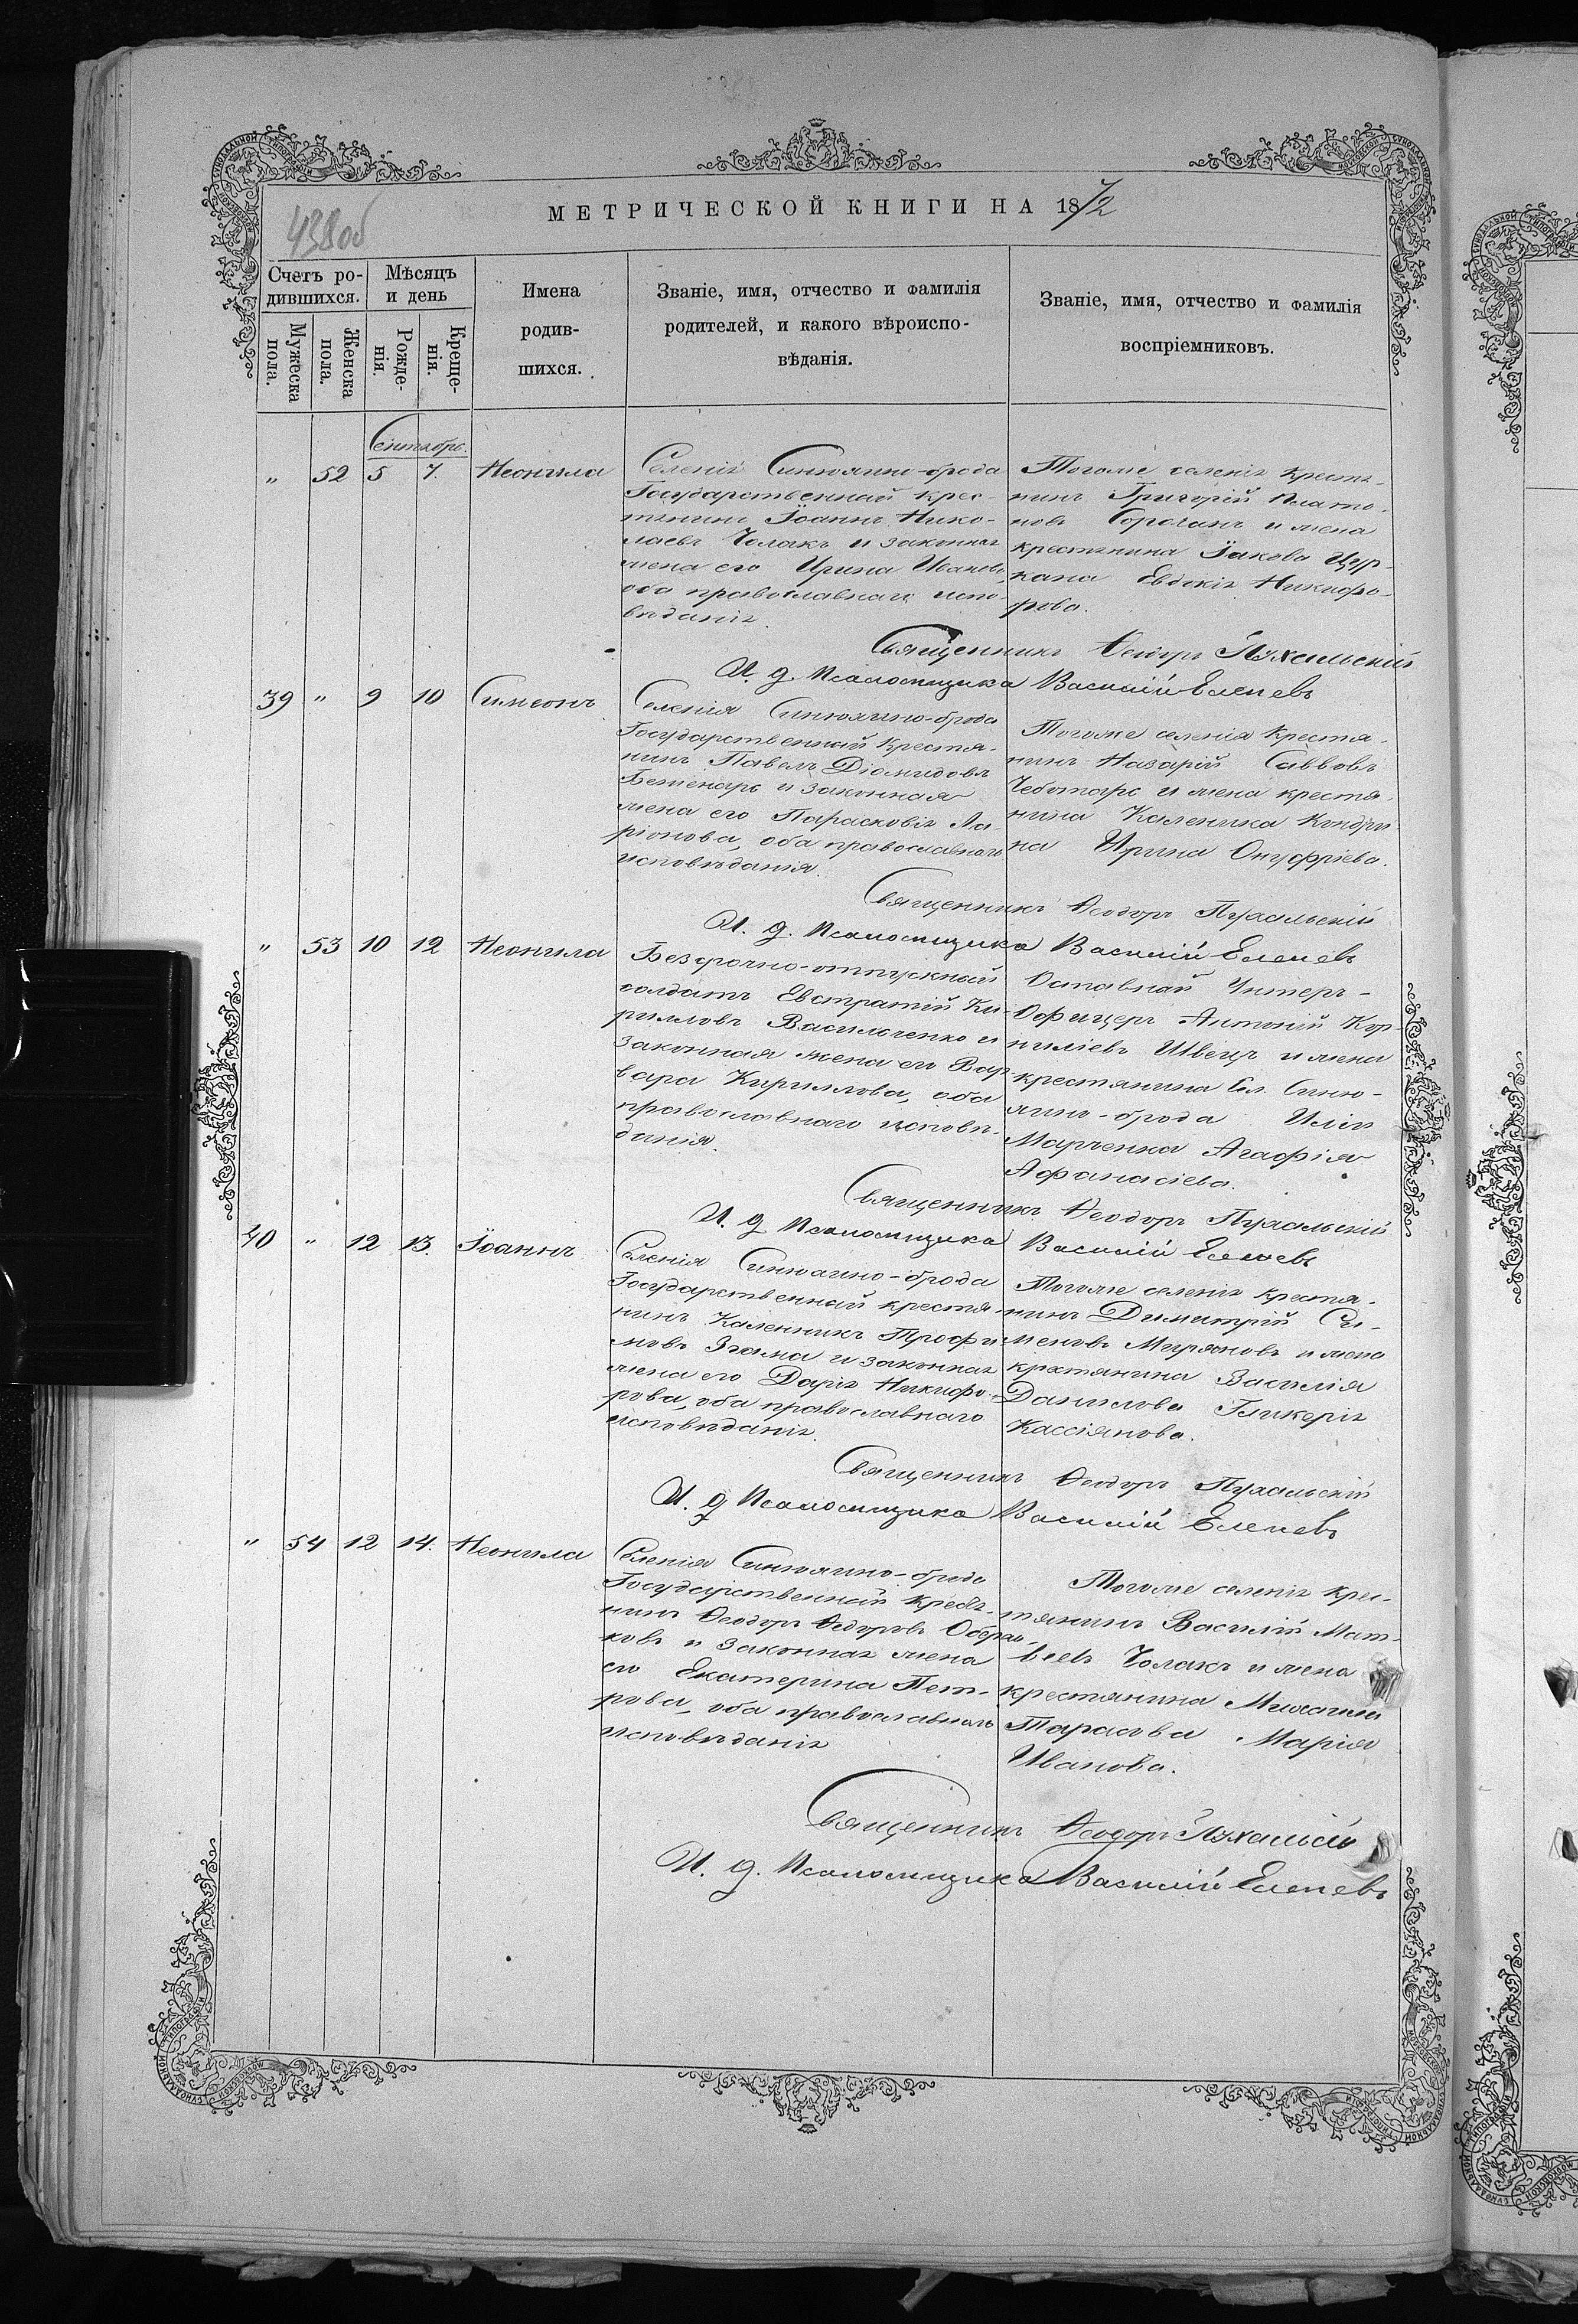 МЕТРИЧЕСКОЙ КНИГИ НА 1872
438об
Счетъ ро-
дившихся.
Мѣсяцъ
и день
Мужеска
пола.
Женска
пола.
Рожде-
нія.
Креще-
нія.
Имена
родив-
шихся.
Званіе, имя, отчество и фамилія
родителей, и какого вѣроиспо-
вѣданія.
Званіе, имя, отчество и фамилія
воспріемниковъ.
Сентябрь.
" 52 5 7. Неонила
Селенія Синюхино-брода
Государственный крес-
тянинъ Іоаннъ Нико-
лаевъ Чолакъ и законная
жена его Ирина Иванова,
оба православнаго испо-
вѣданія.
Тогоже селенія крестя-
нинъ Григорій Плато-
новъ и жена
крестянина Іакова Цур-
кана Евдокія Никифо-
рова.
Священникъ Ѳеодоръ Пухальскій
И. д. Псаломщика Василій Еленевъ
39 " 9 10 Симеонъ
Селенія Синюхино-брода
Государственный крестя-
нинъ Павелъ Діомидовъ
Бешенарь и законная
жена его Парасковія Ла-
ріонова, оба православнаго
исповѣданія.
Тогоже селенія крестя-
нинъ Назарій Саввовъ
Чеботарь и жена крестя-
нина Каленика Кондри-
на Ирина Онуфріева.
Священникъ Ѳеодоръ Пухальскій
И. д. Псаломщика Василій Еленевъ
" 53 10 12 Неонила
Безсрочно-отпускной
солдатъ Евстратій Ки-
рилловъ Васильченко и
законная жена его Вар-
вара Кириллова, оба
православнаго исповѣ-
данія.
Отставной Унтеръ-
Офицеръ Антоній Кор-
ниліевъ Швецъ и жена
крестянина Сел. Синю-
хино-брода Иліи
Марченка Агафія
Афанасіева.
Священникъ Ѳеодоръ Пухальскій
И. д. Псаломщика Василій Еленевъ
40 " 12 13. Іоаннъ
Селенія Синюхино-брода
Государственный крестя-
нинъ Каленикъ Трофи-
мовъ Згама и законная
жена его Дарія Никифо-
рова, оба православнаго
исповѣданія.
Тогоже селенія крестя-
нинъ Димитрій Си-
меновъ Миряновъ и жена
крестянина Василія
Данилова Гликерія
Кассіянова.
Священникъ Ѳеодоръ Пухальскій
И. д. Псаломщика Василій Еленевъ
" 54 12 14. Неонила
Селенія Синюхино-брода
Государственный крестя-
нинъ Ѳеодоръ Ѳедоровъ
и законная жена
его Екатерина Пет-
рова, оба православнаго
исповѣданія
Тогоже селенія крес-
тянинъ Василій Мат-
веевъ Чолакъ и жена
крестянина Михаила
Тарасова Марія
Иванова.
Священникъ Ѳеодоръ Пухальскій
И. д. Псаломщика Василій Еленевъ